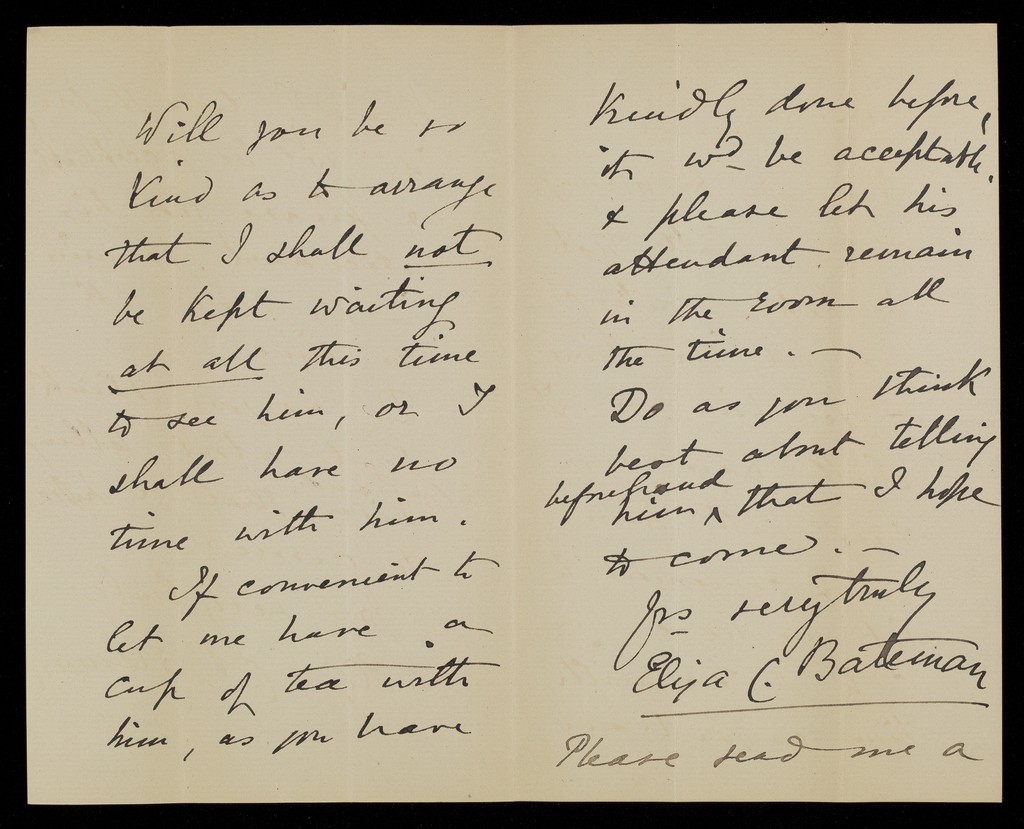 Will you be so
kind as to arrange
that I shall not
be kept waiting
at all this time
to see him, or I
shall have no
time with him.
If convenient to
let me have a
cup of tea with
him, as you have
kindly done before,
it wd be acceptable.
& please let his
attendant remain
in the room all
the time. —
Do as you think
best about telling
beforehand
him ^ that I hope
to come. —
Yrs very truly
Eliza C. Bateman
Please send me a